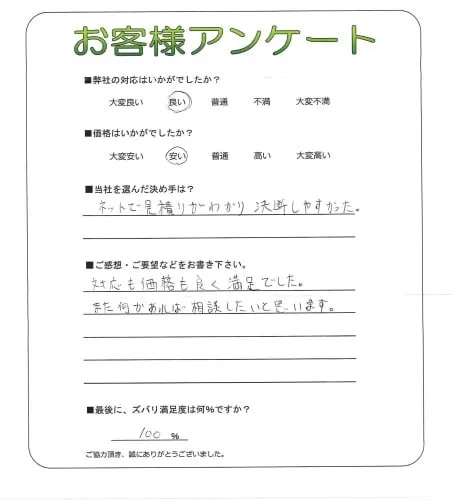 お客様アンケート
■弊社の対応はいかがでしたか?
大変良い 良い 普通 不満 大変不満
■価格はいかがでしたか?
大変安い 安い 普通 高い 大変高い
■当社を選んだ決め手は?
ネットで見積りがわかり 決断しやすかった。
■ご感想・ご要望などをお書き下さい。
対応も価格も良く満足でした。
また何かあれば相談したいと思います。
■最後に、ズバリ満足度は何%ですか?
100 %
ご協力頂き、誠にありがとうございました。